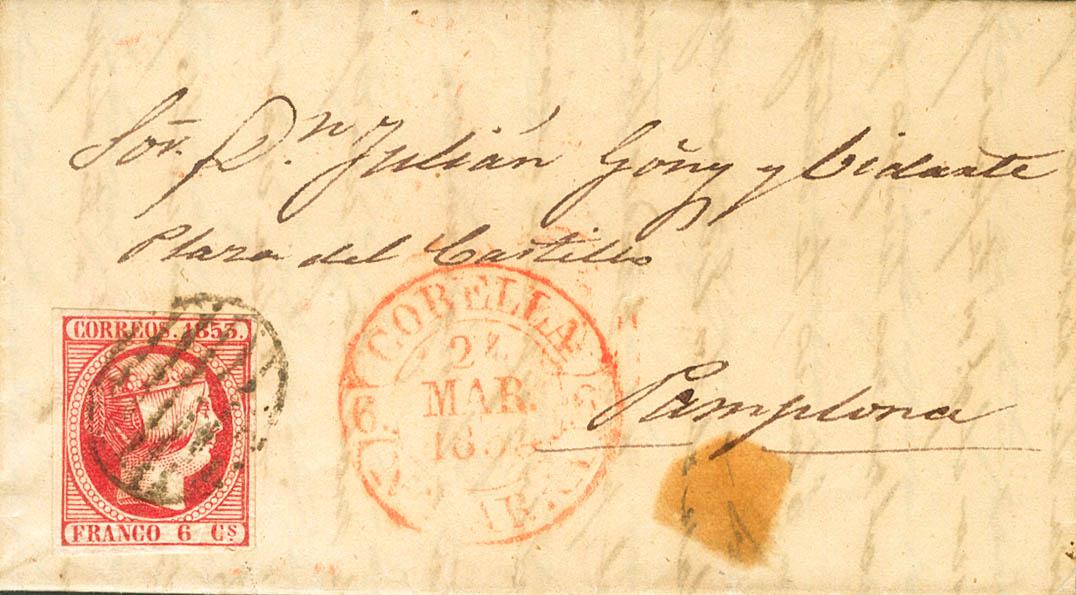 Sor. Dn. Julián Goñy y Vidarte
Plaza del Castillo
Pamplona
CORREOS. 1853.
FRANCO 6 Cs
CORELLA
MAR.